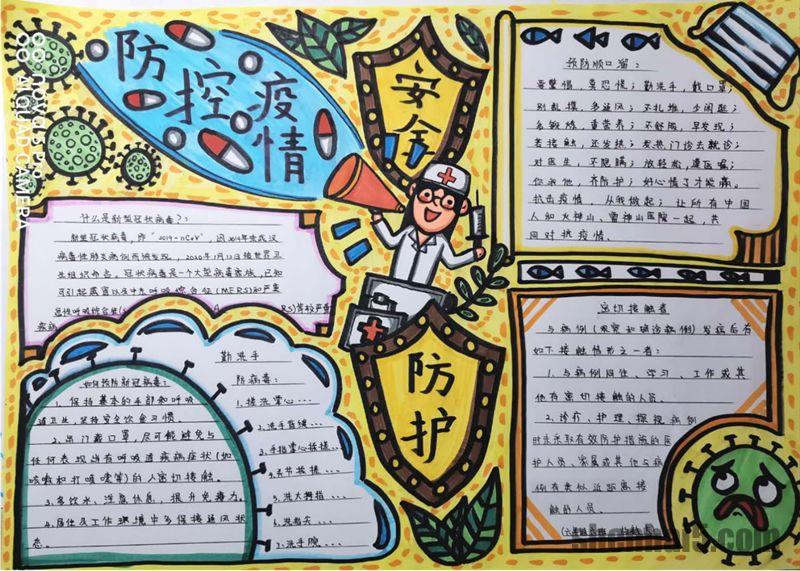 防控疫情
安全
防护
预防顺口溜：
要警惕，莫恐慌；勤洗手，戴口罩；
别乱摸，多通风；不扎堆，少闲逛；
多锻炼，重营养；不舒服，早发现；
若接触，还发热；发热门诊去就诊；
对医生，不隐瞒；放轻松，遵医嘱；
你我他，齐防护；好心情了才能痛。
抗击疫情，从我做起；让所有中国
人和火神山、雷神山医院一起，共
同对抗疫情。
什么是新型冠状病毒？：
新型冠状病毒，即“2019-nCoV”，因2019年末武汉
病毒性肺炎病例而被发现，2020年1月12日被世界卫
生组织命名。冠状病毒是一个大型病毒家族，已知
可引起感冒以及中东呼吸综合征(MERS)和严重
急性呼吸综合征
RS)等较严重
疾病
如何预防新冠病毒：
1、保持基本的手部和呼吸
道卫生，坚持安全饮食习惯。
2、出门戴口罩，尽可能避免与
任何表现出有呼吸道疾病症状(如
咳嗽和打喷嚏等)的人密切接触。
3、多饮水，注意休息，提升免疫力。
4、居住及工作环境中多保持通风状
态。
勤洗手
防病毒：
1、搓洗掌心…
2、洗手背缝…
3、手指掌心揉搓…
4、关节揉搓…
5、洗大拇指…
6、洗指尖…
7、洗手腕…
密切接触者
与病例(观察和确诊病例)发病后有
如下接触情形之一者：
1、与病例同住、学习、工作或其
他有密切接触的人员。
2、诊疗、护理、探视病例
时未采取有效防护措施的医
护人员、家属或其他与病
例有类似近距离接
触的人员。
AI QUAD CAMERA